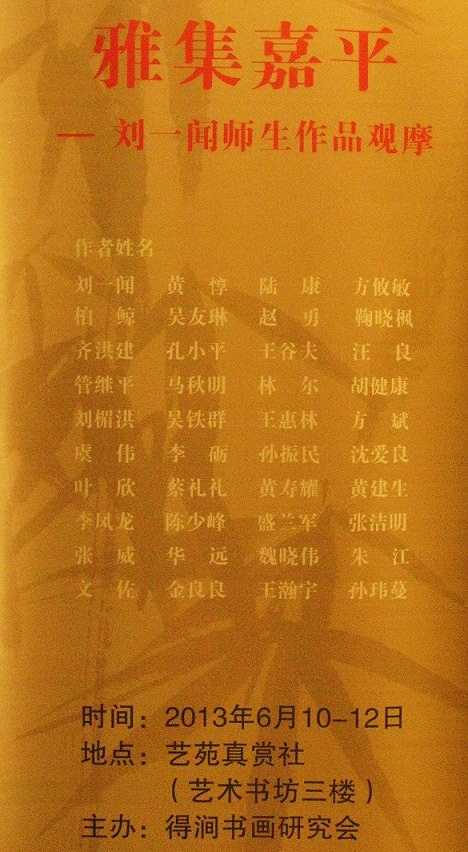 雅集嘉平
— 刘一闻师生作品观摩
作者姓名
刘一闻 黄惇 陆康 方攸敏
柏鲸 吴友琳 赵勇 鞠晓枫
齐洪建 孔小平 王谷夫 汪良
管继平 马秋明 林尔 胡健康
刘楣洪 吴铁群 王惠林 方斌
虞伟 李砺 孙振民 沈爱良
叶欣 蔡礼礼 黄寿耀 黄建生
李凤龙 陈少峰 盛兰军 张洁明
张威 华远 魏晓伟 朱江
文佐 金良良 王瀚宇 孙玮蔓
时间：2013年6月10-12日
地点：艺苑真赏社
（艺术书坊三楼）
主办：得涧书画研究会